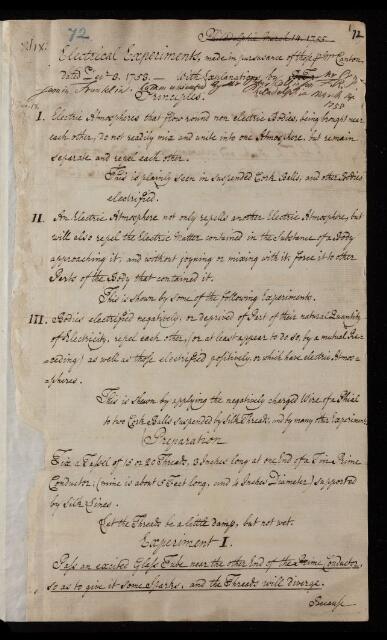 72
Philadelphia March 14. 1755.
72
Electrical Experiments, made in pursuance of those by Mr. Canton,
dated Decr. 3. 1753. — With Explanations, by Mr. Ben-
jamin Franklin. Philadelphia March 14.
Principles. 1755
I. Electric Atmospheres that flow round non electric Bodies, being bro't near
each other, do not readily mix and unite into one Atmosphere, but remain
separate and repel each other.
This is plainly seen in suspended Cork Balls, and other Bodies
electrified.
II. An Electric Atmosphere not only repels another Electric Atmosphere, but
will also repel the Electric Matter contained in the Substance of a Body
approaching it; and without joyning or mixing with it, force it to other
Parts of the Body that contained it.
This is shown by some of the following Experiments.
III. Bodies electrified negatively, or deprived of Part of their natural Quantity
of Electricity, repel each other, (or at least appear to do so, by a mutual Re-
ceding) as well as those electrified positively, or which have electric Atmos-
=pheres.
This is Shewn by applying the negatively charged Wire of a Phial
to two Cork Balls suspended by Silk Threads, and by many other Experiments.
Preparation
Fix a Tassel of 15 or 20 Threads, 3 Inches long at one End of a Tin Prime
Conductor; (mine is about 5 Feet long, and 4 Inches Diameter) supported
by Silk Lines.
Let the Threads be a little damp, but not wet.
Experiment I.
Pass an excited Glass Tube near the other End of the Prime Conductor,
so as to give it some Sparks, and the Threads will diverge.
Because